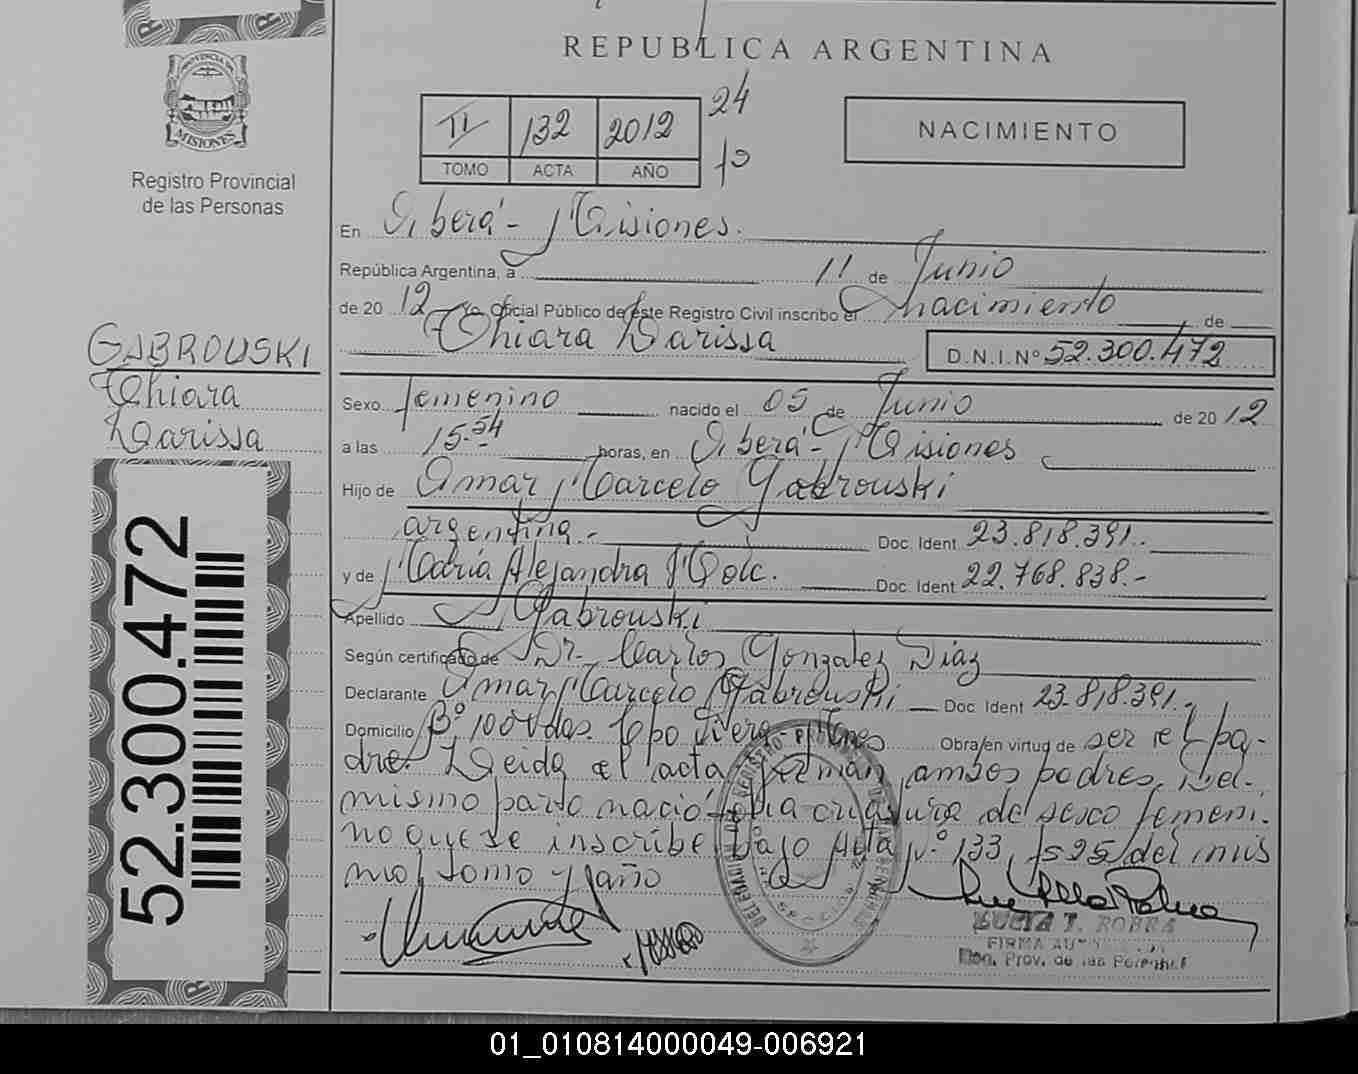 REPUBLICA ARGENTINA
PROVINCIA DE
MISIONES
Registro Provincial
de las Personas
II 132 2012 24
TOMO ACTA AÑO fs
NACIMIENTO
En Oberá - Misiones.
República Argentina, a 11 de Junio
de 2012 Yo, Oficial Público de este Registro Civil inscribo el nacimiento de
Thiara Darissa D.N.I.Nº 52.300.472
GABROUSKI
Thiara
Darissa
Sexo femenino nacido el 05 de Junio de 2012
a las 15.54 horas, en Oberá - Misiones
Hijo de Omar Marcelo Gabrouski
argentina.- Doc. Ident 23.818.391.-
y de María Alejandra Doc. Ident 22.768.838.-
Apellido Gabrouski
Según certificado de Dr. Carlos Gonzalez Diaz
Declarante Omar Marcelo Gabrouski Doc. Ident 23.818.391.-
Domicilio Bº 100 Vdas. Cpo Viera - Mnes Obra/en virtud de ser el pa-
dre. Leida el acta firman ambos padres. Del
mismo parto nació otra criatura de sexo femeni-
no que se inscribe bajo Acta Nº 133, fs 25 del mis
mo tomo y año
52.300.472
LUCIA T. ROBRA
Reg. Prov. de las Personas
01_010814000049-006921